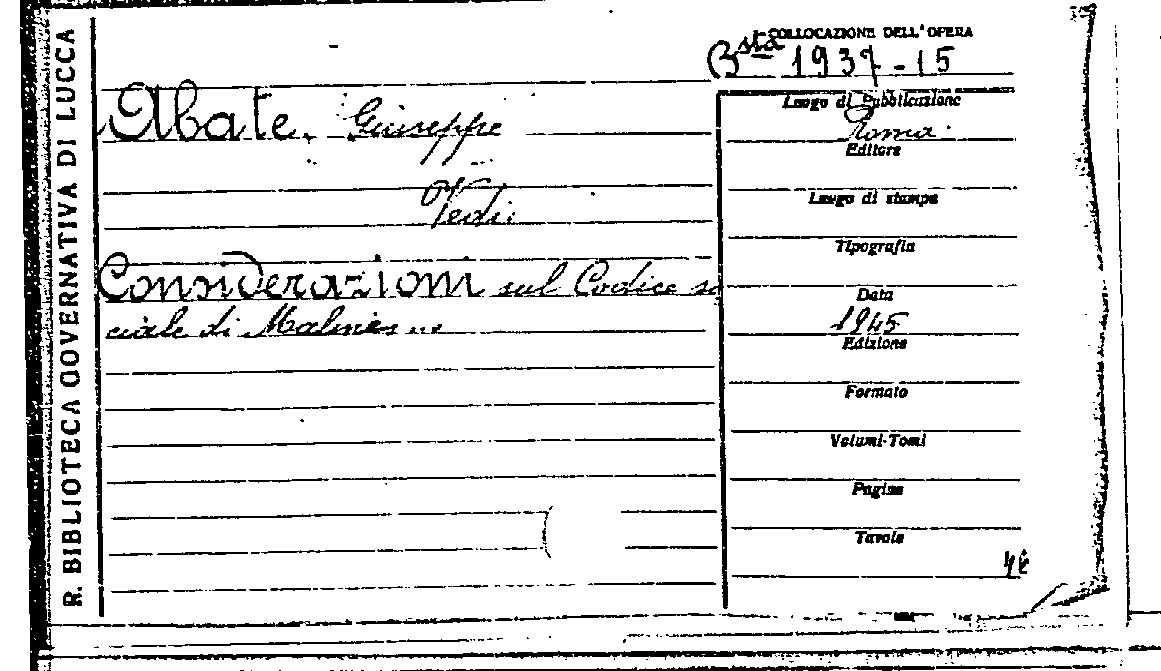 R. BIBLIOTECA GOVERNATIVA DI LUCCA
COLLOCAZIONE DELL'OPERA
Bsta 1937-15
Abate. Giuseppe
Vedi:
Considerazioni sul Codice so
ciale di Malines ...
Luogo di Pubblicazione
Roma.
Editore
Luogo di stampa
Tipografia
Data
1945
Edizione
Formato
Volumi-Tomi
Pagine
Tavole